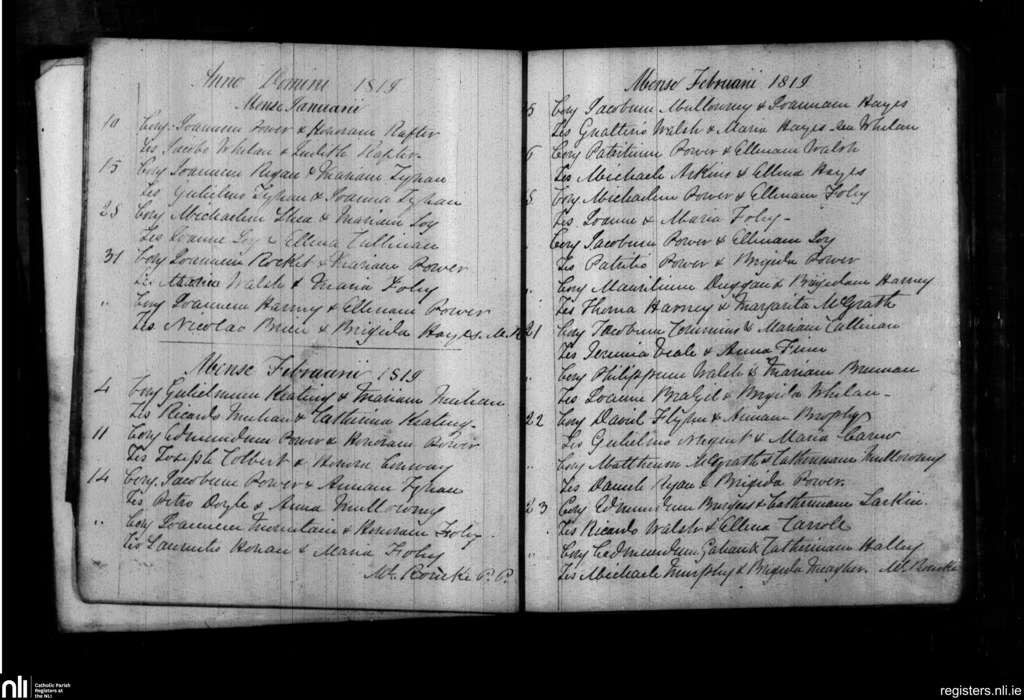 Anno Domini 1819
Mense Januarii
10 Conj. Joannem Power & Honoram Rafter
Tes Jacobo Whelan & Judith Rafter
15 Conj Joannem Ryan & Mariam Tyhan
Tes Gulielmo Tyhan & Joanna Tyhan
28 Conj Michaelem Shea & Mariam Joy
Tes Joanne Joy & Ellena Cullinan
31 Conj Joannem Rocket & Mariam Power
Tes Walsh & Maria Foley
" Conj Joannem Harney & Ellenam Power
Tes Nicolao Brien & Brigida Hayes. M.R
Mense Februarii 1819
4 Conj Gulielmum Keating & Mariam
Tes Ricardo & Catherina Keating
11 Conj Edmundum Power & Honoram Power
Tes Joseph Colbert & Honora Conway
14 Conj. Jacobum Power & Annam Tyhan
Tes Petro Doyle & Anna Mullowny
" Conj Joannem Mountain & Honoram Foley
Tes Laurentio Honan & Maria Foley
Ml. Rourke P.P.
Mense Februarii 1819
5 Conj Jacobum Mullowney & Joannam Hayes
Tes Gualtero Walsh & Maria Hayes Whelan
6 Conj Patritium Power & Ellenam Walsh
Tes Michaele & Ellena Hayes
8 Conj Michaelem Power & Ellenam Foley
Tes Joanne & Maria Foley -
" Conj Jacobum Power & Ellenam Joy
Tes Patritio Power & Brigida Power
" Conj Mauritium Duggan & Brigidam Harney
Tes Thoma Harney & Margarita McGrath
21 Conj Jacobum Commins & Mariam Cullinan
Tes Jeremia Veale & Anna Finn
" Conj Philippum Walsh & Mariam Brennan
Tes Joanne Brazil & Brigida Whelan -
22 Conj David Flynn & Annam Brophy
Tes Gulielmo Nugent & Maria Carew
" Conj Mattheum McGrath & Catherinam Mullowny
Tes Daniele Ryan & Brigida Power
23 Conj Edmundum Burgess & Catherinam Larkin
Tes Ricardo Walsh & Ellena Carrole
" Conj Edmundum Gahan & Catherinam Halley
Tes Michaele Murphy & Brigida Meagher. Ml. Rourke
nli Catholic Parish
Registers at
the NLI
registers.nli.ie